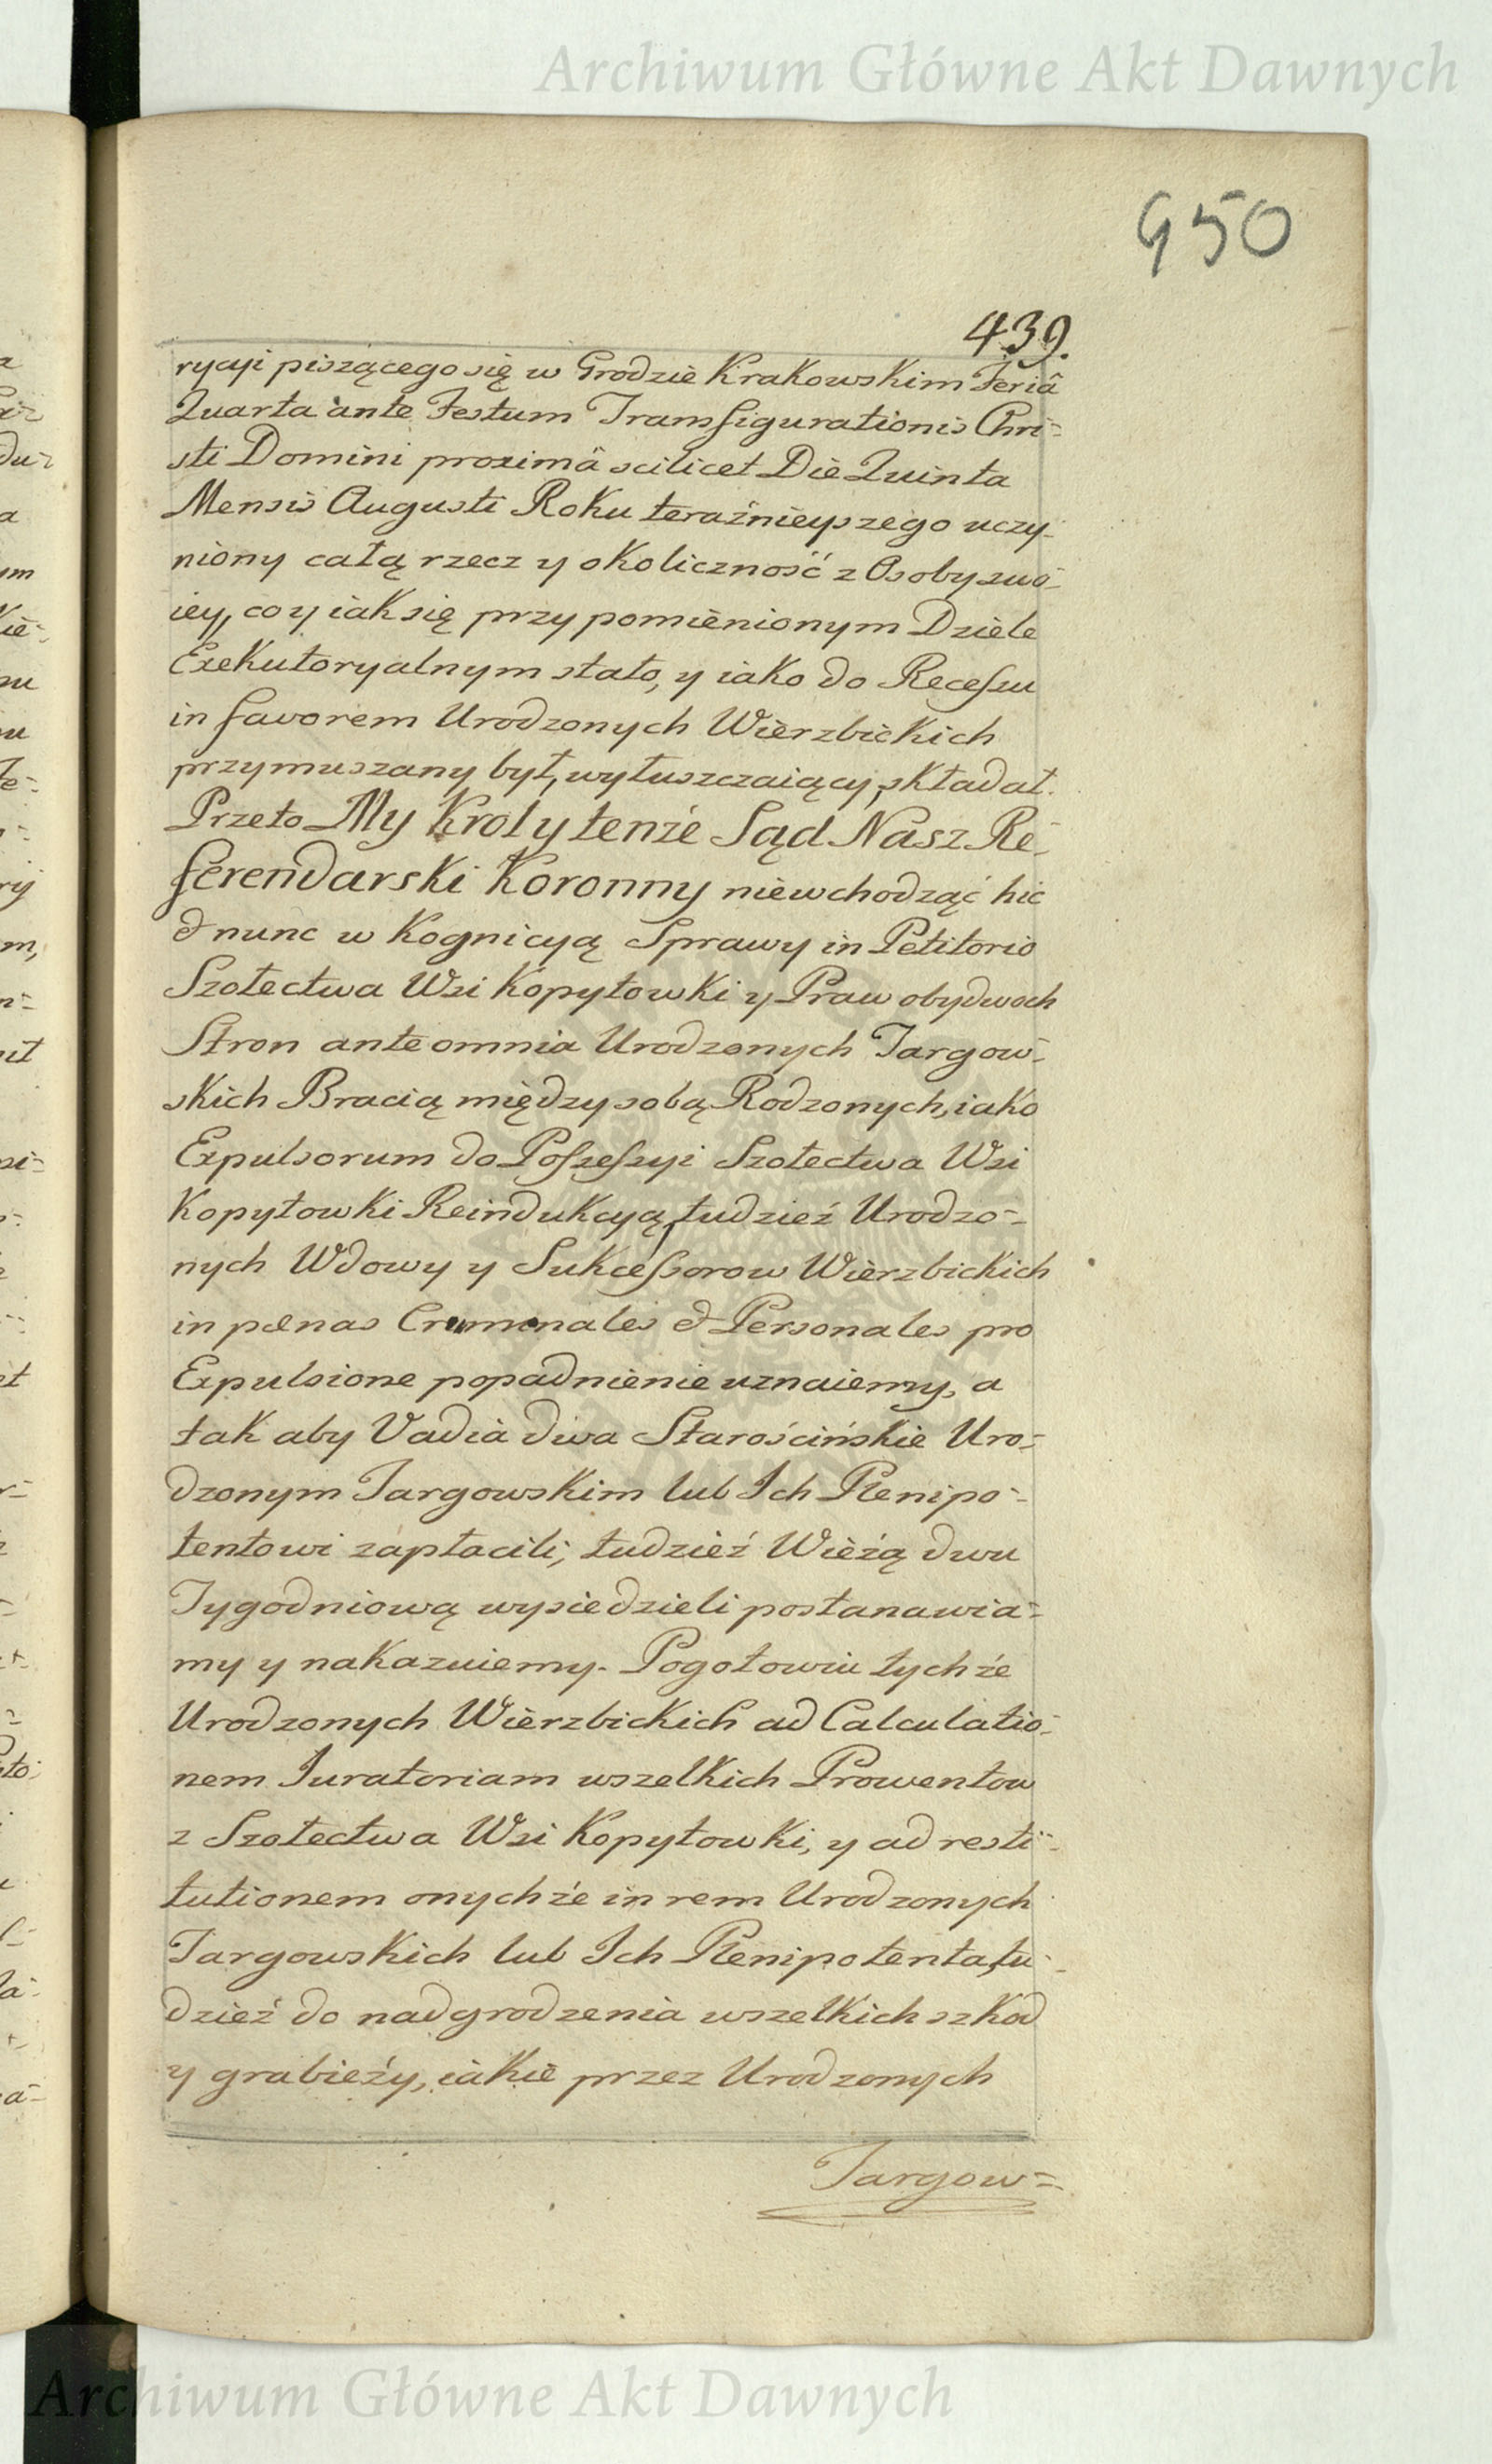 Archiwum Główne Akt Dawnych
450
439.
rycyi piszącego się w Grodzie Krakowskim Feriâ
Quarta ante Festum Transfigurationis Chri=
sti Domini proximâ scilicet Die Quinta
Mensis Augusti Roku teraźnieyszego uczy=
niony całą rzecz y okoliczność z Osoby swo=
iey, co y iak się przy pomienionym Dziele
Exekutoryalnym stało, y iako do Recessu
in favorem Urodzonych Wierzbickich
przymuszany był, wyłuszczaiący, składał.
Przeto My Krol y tenże Sąd Nasz Re=
ferendarski Koronny niewchodząć hic
& nunc w Kognicyą Sprawy in Petitorio
Szołectwa Wsi Kopytowki y Praw obydwoch
Stron ante omnia Urodzonych Targow=
skich Bracią między sobą Rodzonych, iako
Expulsorum do Possessyi Szołectwa Wsi
Kopytowki Reindukcyą, tudzież Urodzo=
nych Wdowy y Sukcessorow Wierzbickich
in pœnas Criminales & Personales pro
Expulsione popadnienie uznaiemy, a
tak aby Vadia dwa Starościńskie Uro=
dzonym Targowskim lub Ich Plenipo=
tentowi zapłacili, tudzież Wieżą dwu
Tygodniową wysiedzieli postanawia=
my y nakazuiemy. Pogotowiu tychże
Urodzonych Wierzbickich ad Calculatio=
nem Juratoriam wszelkich Prowentow
z Szołectwa Wsi Kopytowki, y ad resti=
tutionem onychże in rem Urodzonych
Targowskich lub Ich Plenipotenta, tu=
dzież do nadgrodzenia wszelkich szkod
y grabieży, iakie przez Urodzonych
Targow=
Archiwum Główne Akt Dawnych